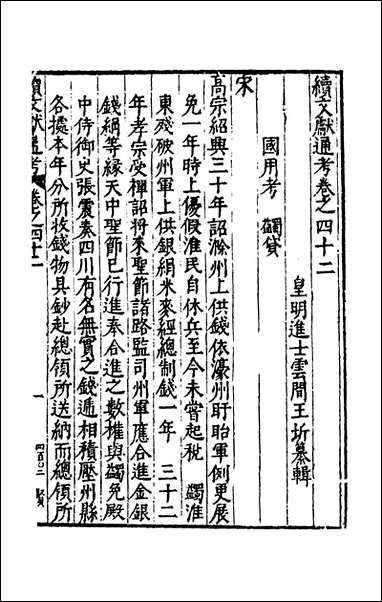 續文獻通考卷之四十二
皇明進士雲間王圻纂輯
國用考 蠲貸
宋
高宗紹興三十年詔滁州上供錢依濠州盱眙軍例更展
免一年時上優假淮民自休兵至今未嘗起稅 蠲淮
東殘破州軍上供銀絹米麥經總制錢一年 三十二
年孝宗受禪詔將來聖節諸路監司州軍應合進金銀
錢絹等緣天中聖節已行進奉合進之數權與蠲免殿
中侍御史張震奏四川有名無實之錢遞相積壓州縣
各據本年分所收錢物具鈔赴總領所送納而總領所
續文獻通考 卷之四十二 一